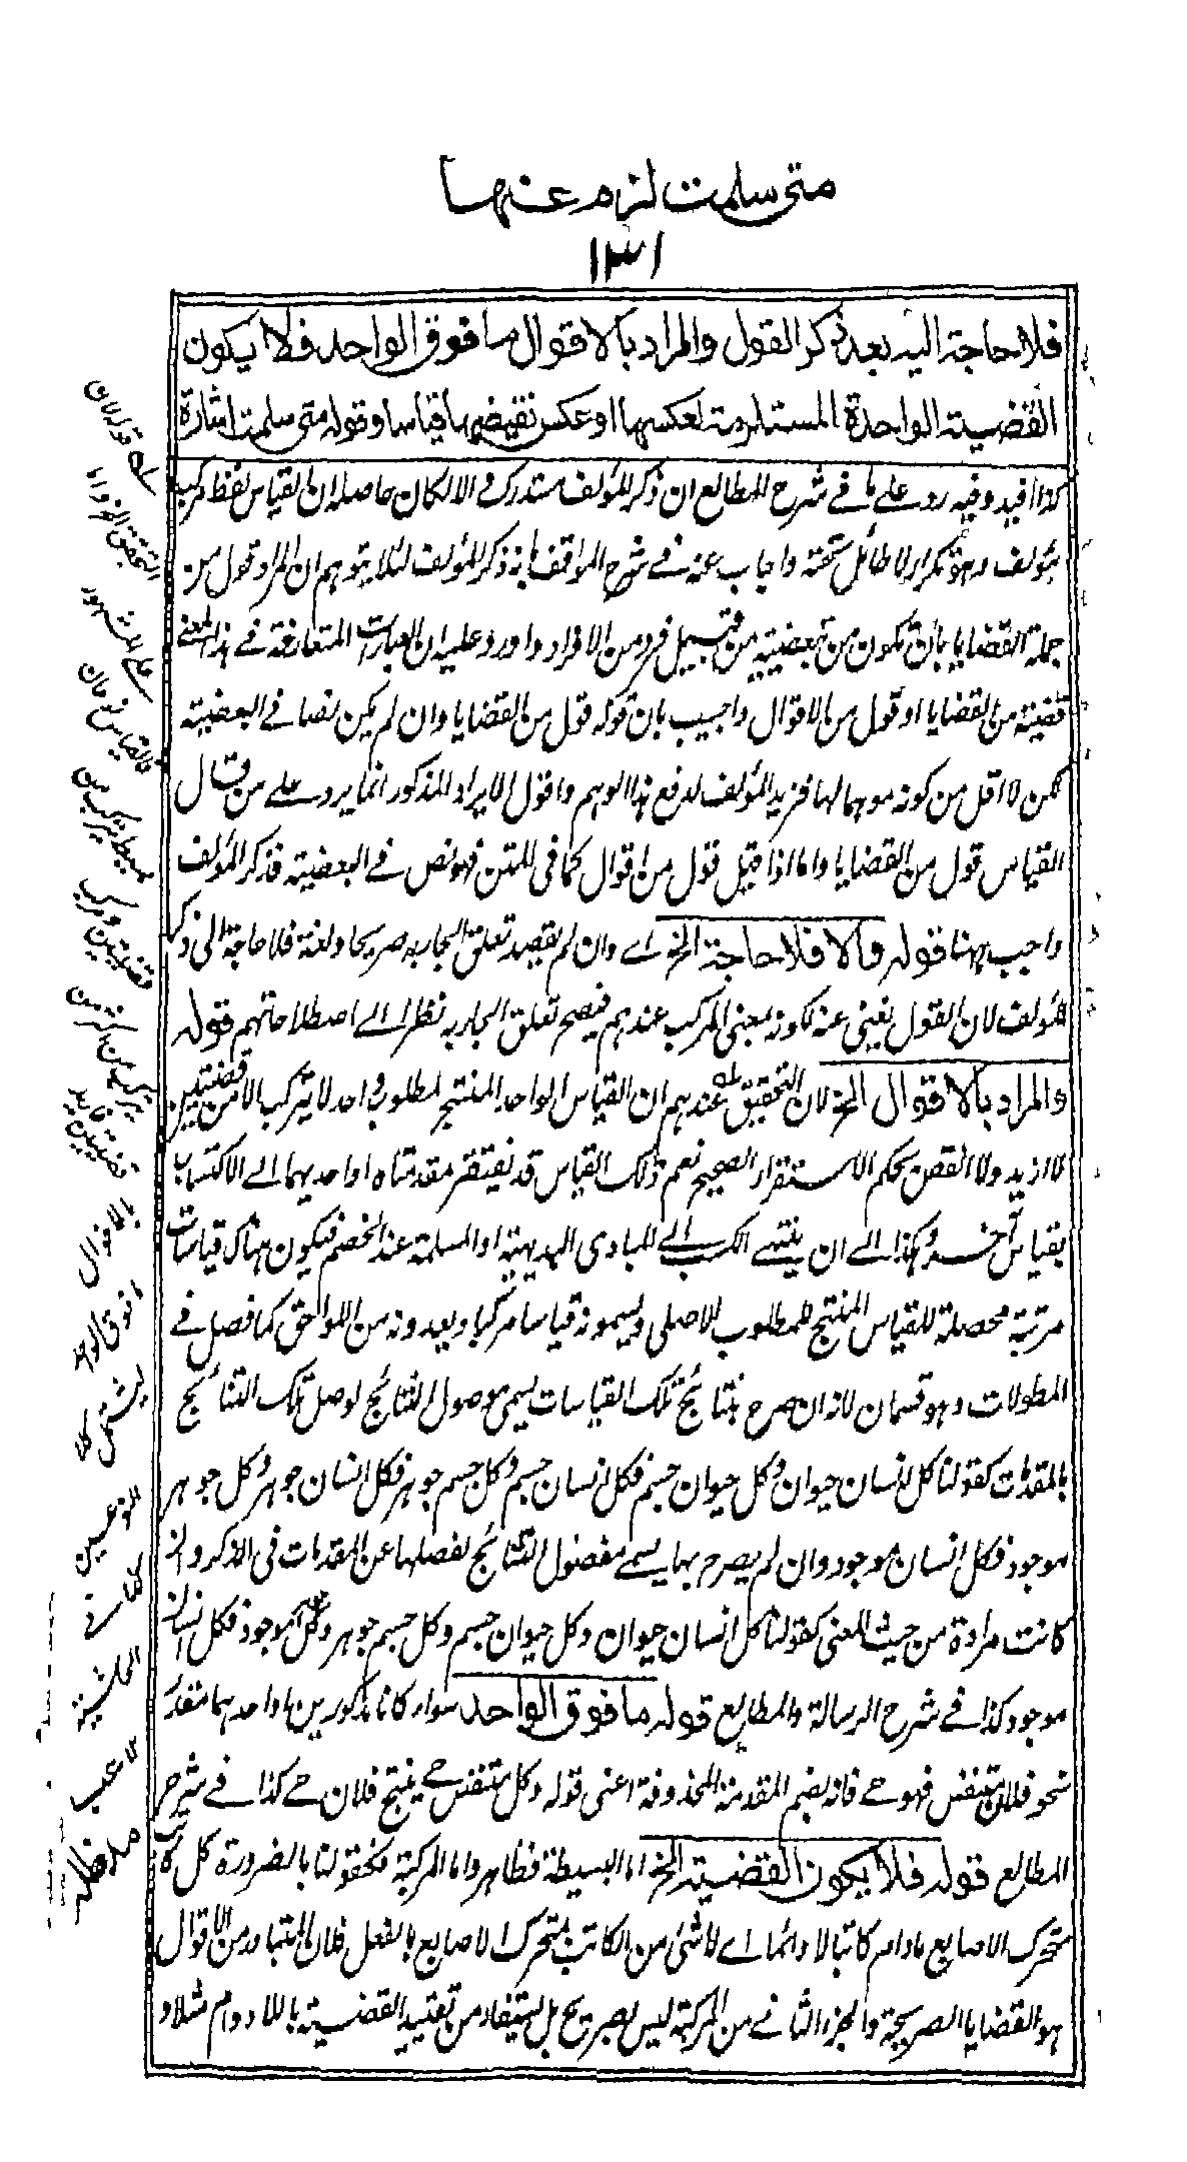 متى سلمت لزم عنها
١٣١
فلا حاجة اليه بعد ذكر القول والمراد بالاقوال ما فوق الواحد فلا يكون
القضية الواحدة المستلزمة لعكسها او عكس نقيضها قياسا وقوله متى سلمت اشارة
كذا افيد وفيه رد على ما في شرح المطالع ان ذكر المؤلف مستدرك والا لكان حاصله ان القياس لفظ مركب
مؤلف وهو تكرار لا طائل تحته واجاب عنه في شرح المواقف بانه ذكر المؤلف لئلا يتوهم ان المراد قول من
جملة القضايا بان تكون من تبعيضية من قبيل فرد من الافراد واورد عليه ان العبارات المتعارفة في هذا المعنى
قضية من القضايا او قول من الاقوال واجيب بان قوله قول من القضايا وان لم يكن نصا في البعضية
لكن لا اقل من كونه موهما لها فزيد المؤلف لدفع هذا الوهم واقول الايراد المذكور انما يرد على من قال
القياس قول من القضايا واما اذا قيل قول من اقوال كما في المتن فهو نص في البعضية فذكر المؤلف
واجب ههنا قوله والا فلا حاجة الخ اے وان لم يقصد تعلق الجار به صريحا ولغة فلا حاجة الى ذكر
المؤلف لان القول يغني عنه لكونه بمعنى المركب عندهم فيصح تعلق الجار به نظرا الى اصطلاحاتهم قوله
والمراد بالاقوال الخ لان التحقيق عندهم ان القياس الواحد المنتج لمطلوب واحد لا يتركب الا من قضيتين
لا ازيد ولا انقص بحكم الاستقراء الصحيح نعم ذلك القياس قد تفتقر مقدمتاه او احديهما الى الاكتساب
بقياس آخر وهكذا الى ان ينتهي الكسب الى المبادى البديهية او المسلمة عند الخصم فيكون هناك قياسات
مرتبة محصلة للقياس المنتج للمطلوب الاصلى ويسمونه قياسا مركبا ويعدونه من اللواحق كما فصل في
المطولات وهو قسمان لانه ان صرح بنتائج تلك القياسات يسمى موصول النتائج لوصل تلك النتائج
بالمقدمات كقولنا كل انسان حيوان وكل حيوان جسم فكل انسان جسم وكل جسم جوهر فكل انسان جوهر وكل جوهر
موجود فكل انسان موجود وان لم يصرح بها يسمى مفصول النتائج لفصلها عن المقدمات في الذكر وان
كانت مرادة من حيث المعنى كقولنا كل انسان حيوان وكل حيوان جسم وكل جسم جوهر وكل جوهر موجود فكل انسان
موجود كذا في شرح الرسالة والمطالع قوله ما فوق الواحد سواء كانا مذكورين او احدهما مقدر
نحو فلان متنفس فهو حى فانه يضم المقدمة المحذوفة اعنى قوله وكل متنفس حى ينتج فلان حى كذا في شرح
المطالع قوله فلا يكون القضية الخ اما البسيطة فظاهر واما المركبة فكقولنا بالضرورة كل كاتب
متحرك الاصابع مادام كاتبا لا دائما اے لا شئ من الكاتب بمتحرك الاصابع بالفعل فلان المتبادر من الاقوال
هو القضايا الصريحة والجزء الثانى من المركبة ليس بصريح بل يستفاد من تقييد القضية باللادوام مثلا و
قوله لان
التحقيق الخ واما
على المشهور
فالقياس نوعان
بسيط يتركب من
قضيتين ومركب
يتركب من اكثر من
قضيتين
بالاقوال
ما فوق الواحد
ليشتمل كلا
النوعين
كما في
الحاشية